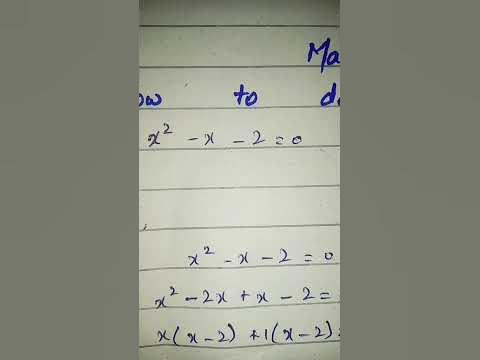 Ma
ow to d
x² - x - 2 = 0
x² - x - 2 = 0
x² - 2x + x - 2 =
x(x-2) + 1(x-2)